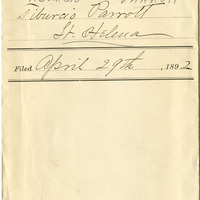 Tiburcio Parrott
St. Helena
Filed April 29th, 1892